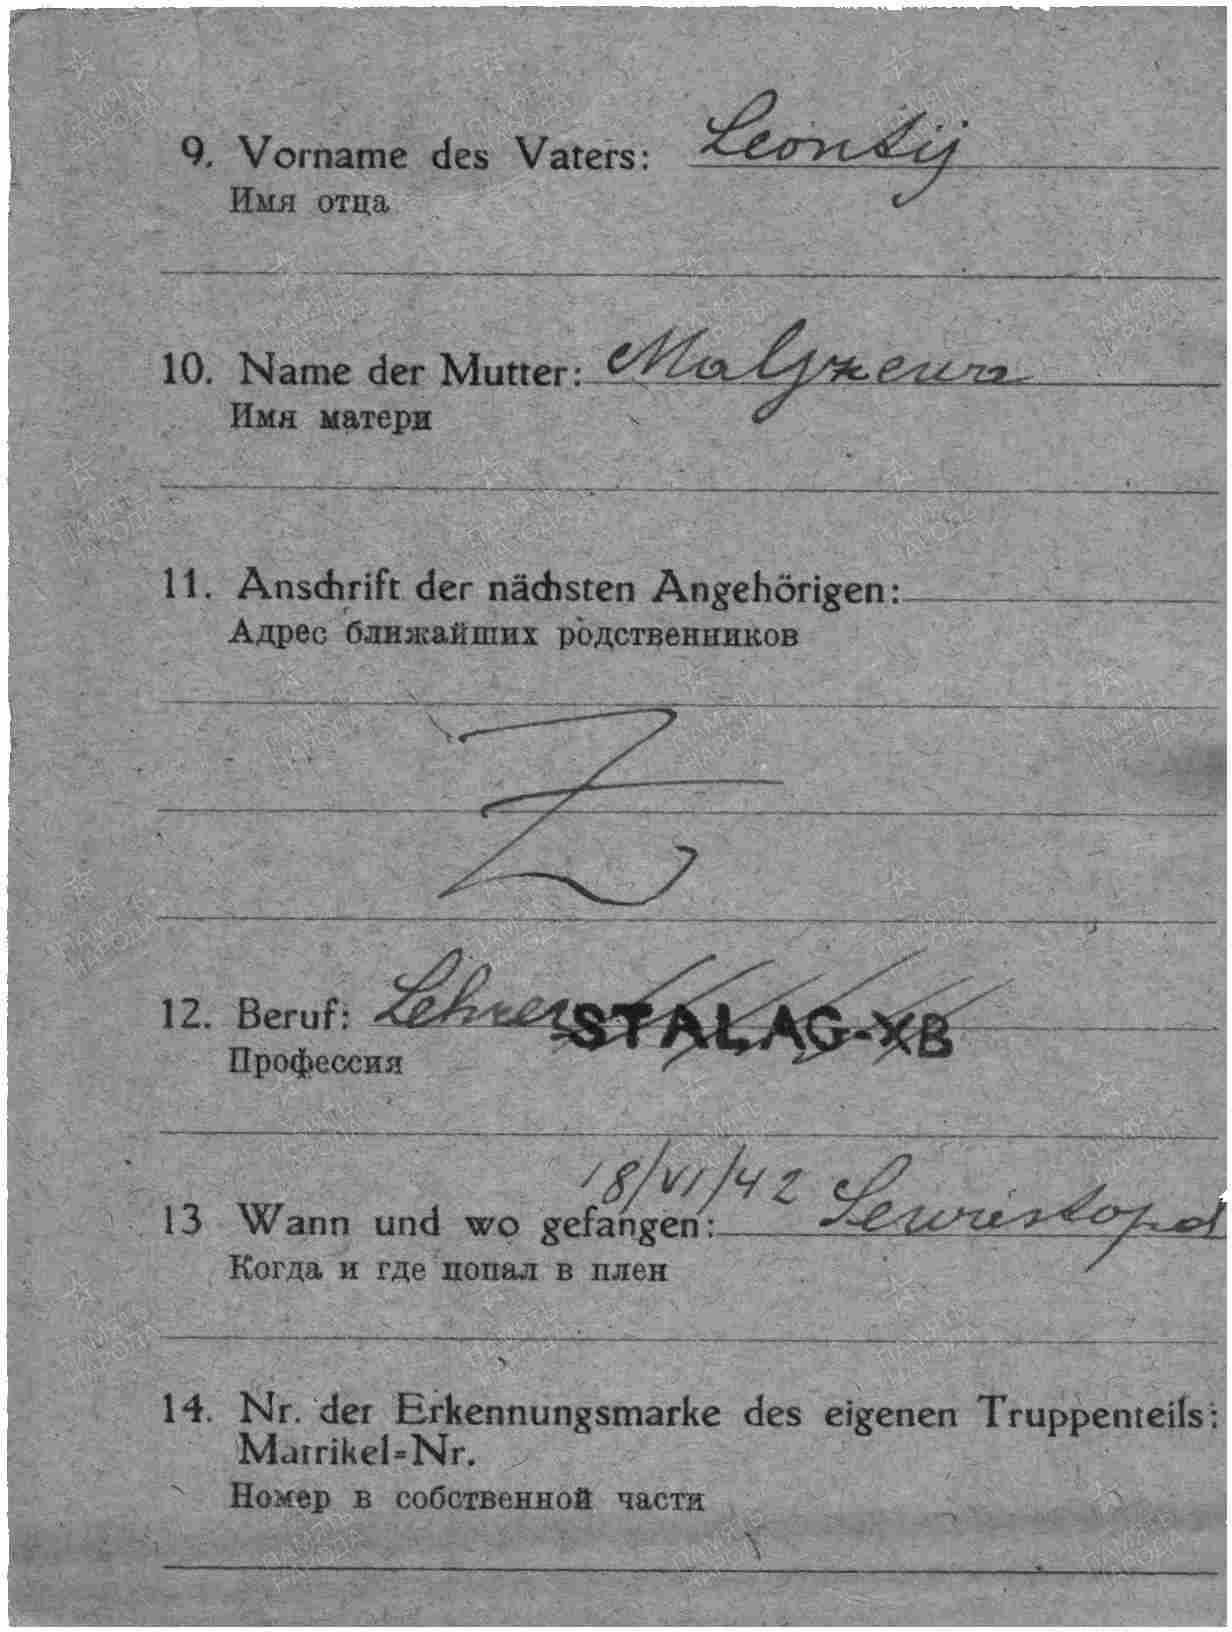 9. Vorname des Vaters: Leontij
Имя отца
10. Name der Mutter: Malyzewa
Имя матери
11. Anschrift der nächsten Angehörigen:
Адрес ближайших родственников
12. Beruf: Lehrer STALAG-XB
Профессия
18/VI/42
13 Wann und wo gefangen: Sewastopol
Когда и где попал в плен
14. Nr. der Erkennungsmarke des eigenen Truppenteils:
Matrikel=Nr.
Номер в собственной части
ПАМЯТЬ
НАРОДА